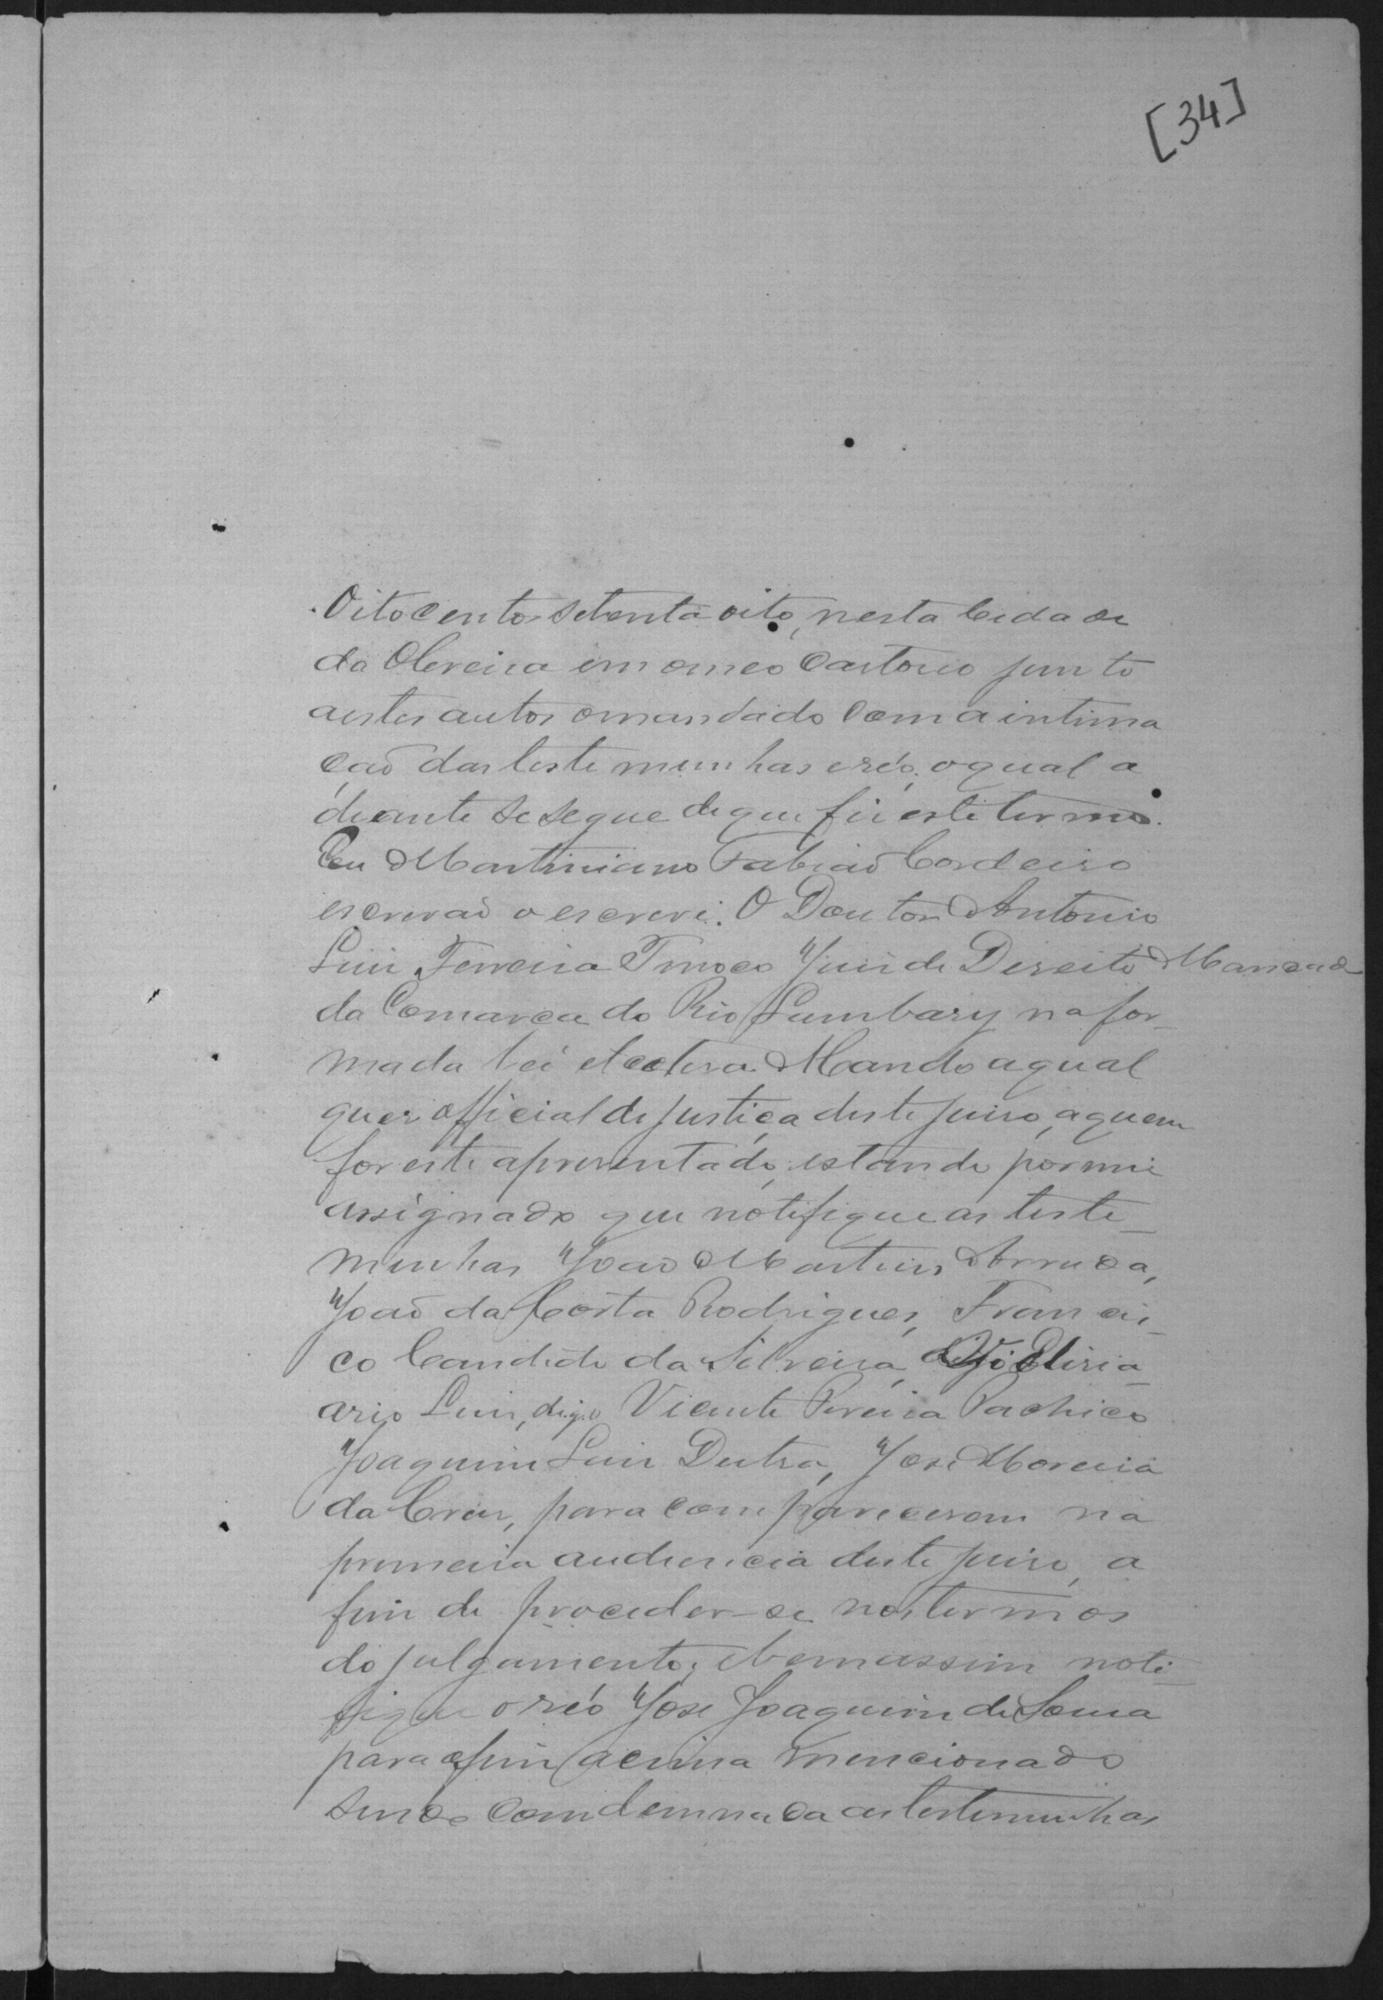 [34]
Oitocentos setenta oito, nesta Cidade
da Oleveira em o meo Cartorio junto
a estes autos o mandado com a intima
ção das testemunhas e réo, o qual a
diante se segue de que fis este termo.
Eu Martiniano Fabião Cordeiro
escrevaõ o escrevi. O Doutor Antonio
Luis Ferreira Tinoco Juis de Direito
da Comarca do Rio Lambary na for-
ma da lei etcetera. Mando a qual
quer official de justiça deste juiso, a quem
for este apresentado, estando por mim
assignado que notifique as teste-
munhas João Martins Arruda,
João da Costa Rodrigues, Francis-
co Candido da Silveira, Elisia-
ario Luis, digo Vicente Pereira Pachico
Joaquim Luis Dutra, Jose Moreira
da Crus, para comparecerem na
premeira audiencia deste juiso, a
fim de proceder-se nos termos
do julgamento, e bem assim noti-
fique o réo Jose Joaquim de Sousa
para o fim acima mencionado
sendo condemnada as testemunhas